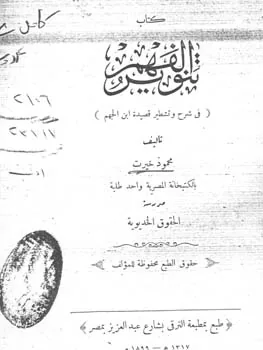 كتاب
تنوير الفهم
( فى شرح وتشطير قصيدة ابن الجهم )
تأليف
محمود خيرت
بالكتبخانة المصرية واحد طلبة
مدرسة
الحقوق الخديوية
حقوق الطبع محفوظة للمؤلف
طبع بمطبعة الترقى بشارع عبد العزيز بمصر
١٣١٧ هـ — ١٨٩٩ م
٢١٠٦
٢٣١١٧
ادب